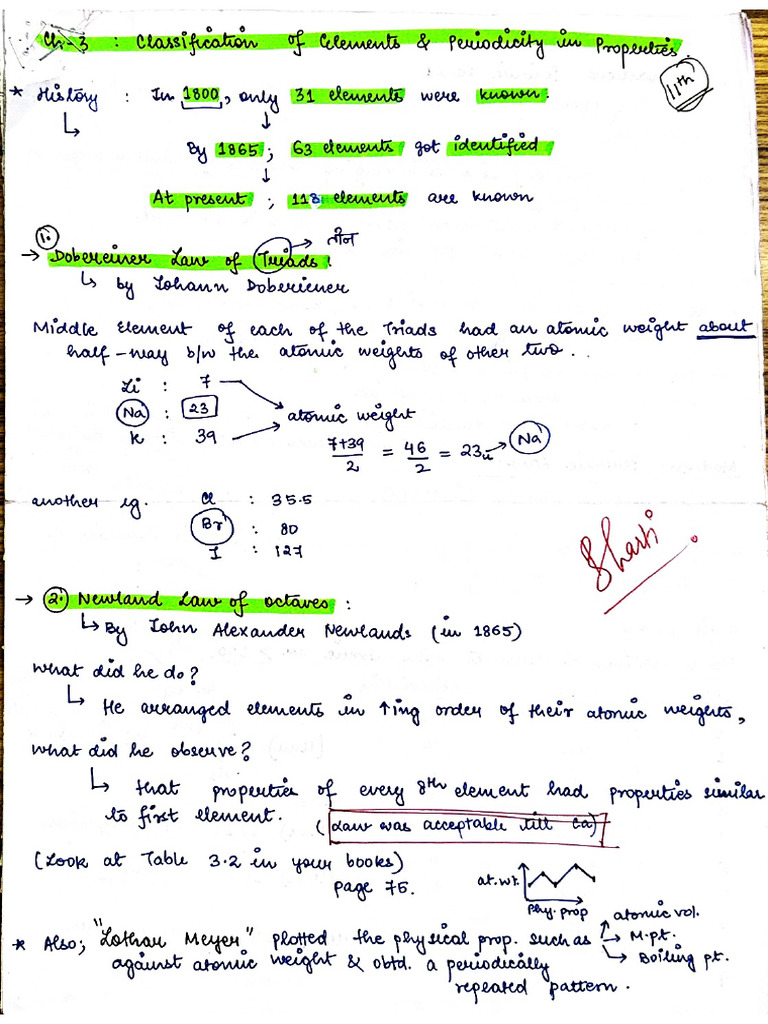 Ch-3 : Classification of Elements & Periodicity in Properties.
11th
* History : In 1800, only 31 elements were known.
By 1865; 63 elements got identified
At present ; 118 elements are known
1.
→ Dobereiner Law of Triads! → तीन
↳ by Johann Doberiener
Middle Element of each of the Triads had an atomic weight about
half-way b/w the atomic weights of other two..
Li : 7
Na : 23 atomic weight
K : 39
7+39/2 = 46/2 = 23u → Na
another eg. Cl : 35.5
Br : 80
I : 127
→ 2. Newland Law of octaves :
↳ By John Alexander Newlands (in 1865)
What did he do?
↳ He arranged elements in ↑ing order of their atomic weights,
what did he observe?
↳ that properties of every 8th element had properties similar
to first element. (Law was acceptable till Ca)
(Look at Table 3.2 in your books)
page 75.
at. wt.
phy. prop
* Also; "Lothar Meyer" plotted the physical prop. such as → atomic vol.
→ M.pt.
→ Boiling pt.
against atomic weight & obtd. a periodically
repeated pattern.